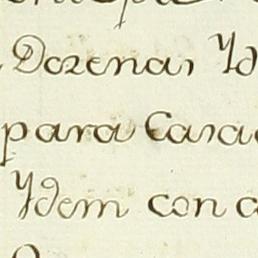 Dozenas Yd
para Casac
Ydem con a